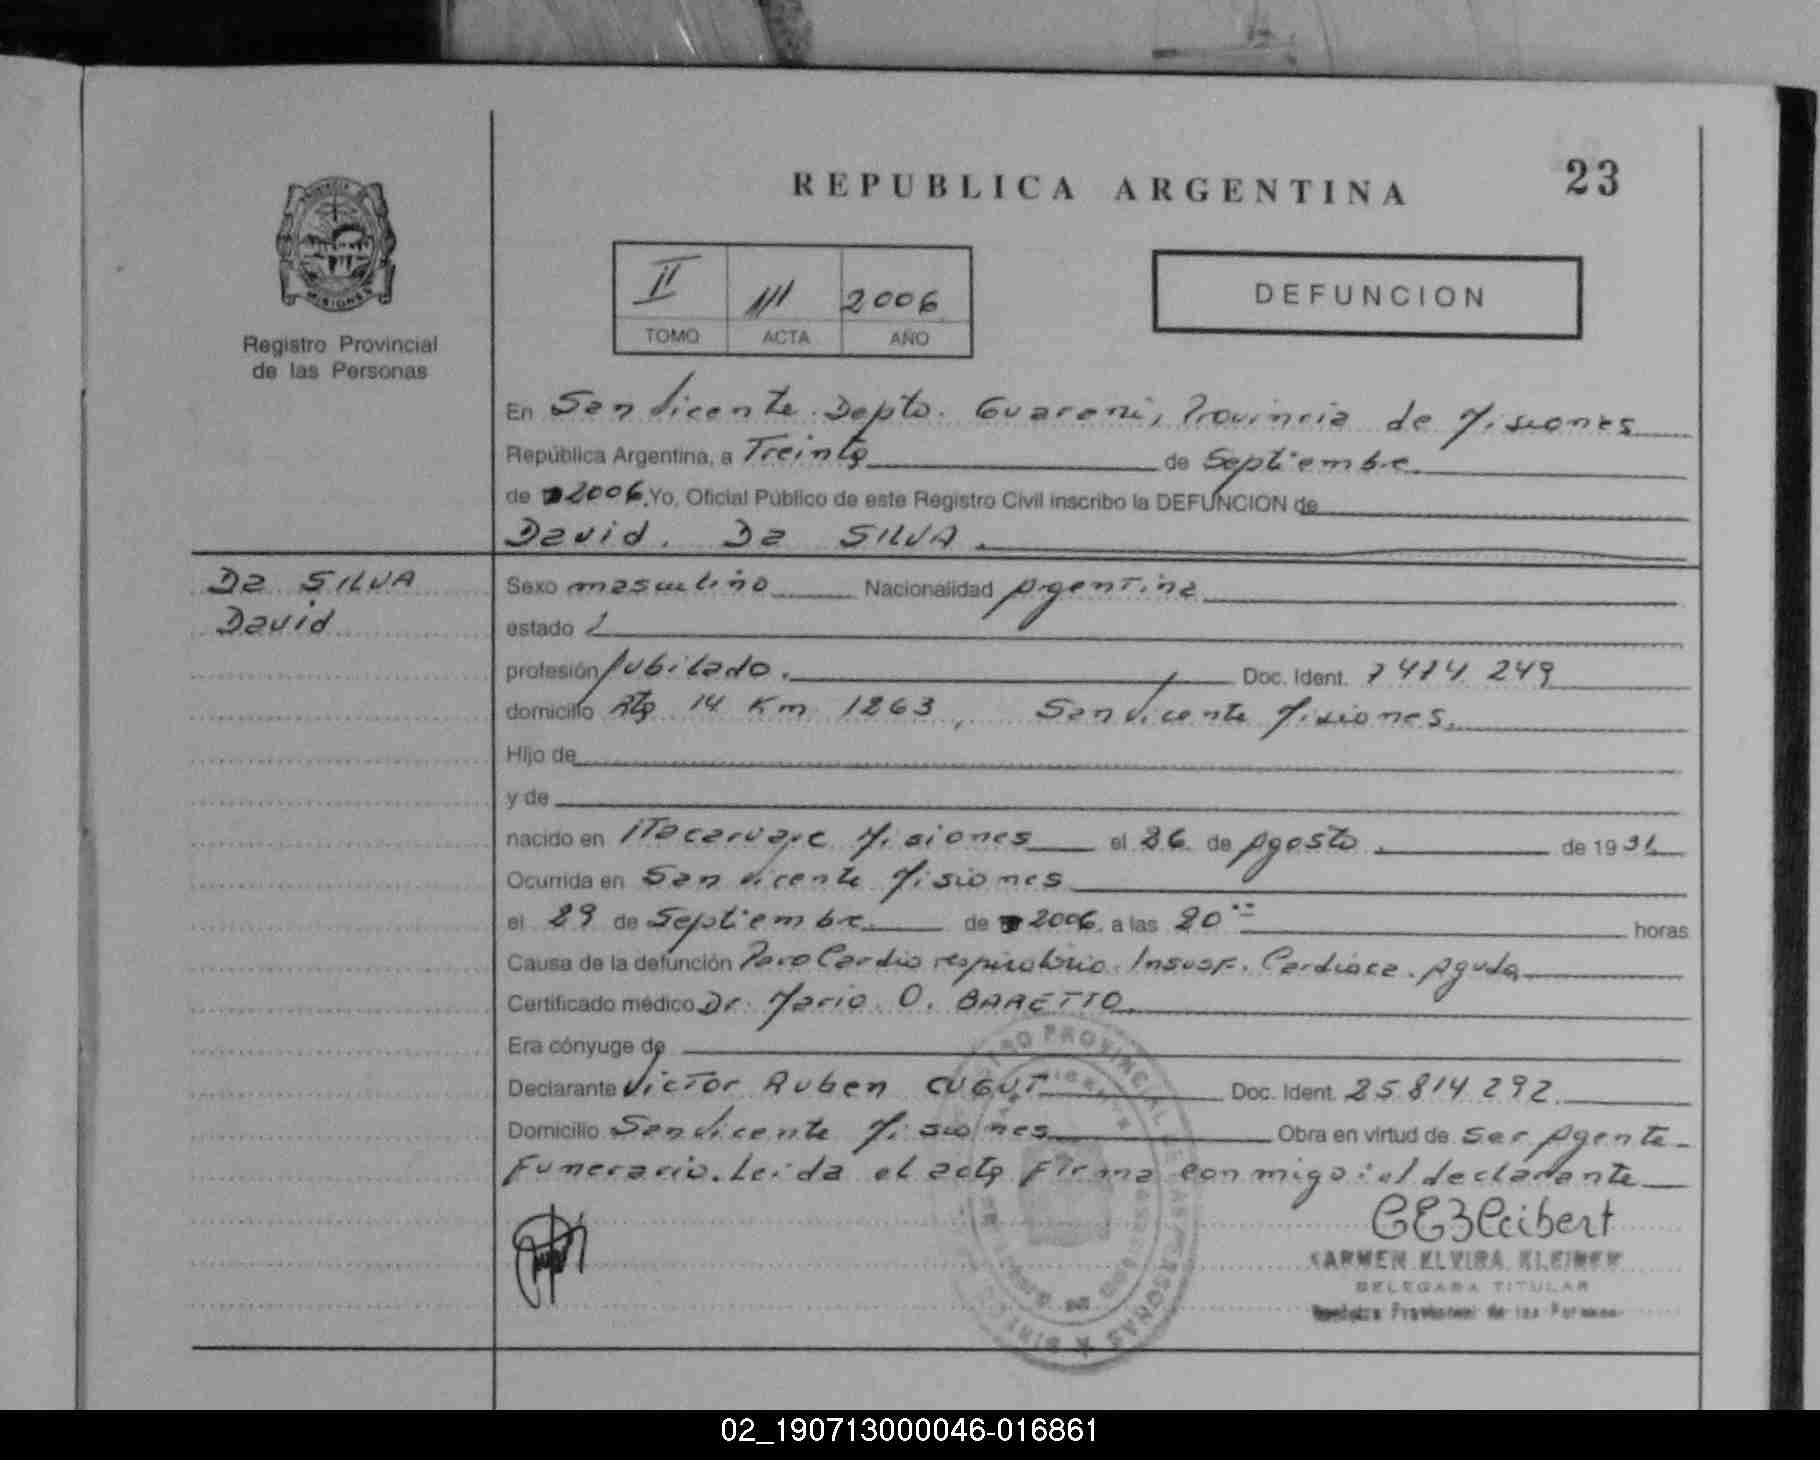 REPUBLICA ARGENTINA
23
II 111 2006
TOMO ACTA AÑO
DEFUNCION
MISIONES
Registro Provincial
de las Personas
En San Vicente. Depto. Guarani, Provincia de Misiones
República Argentina, a Treinta de Septiembre
de 2006. Yo, Oficial Público de este Registro Civil inscribo la DEFUNCION de
David. Da SILVA
Da SILVA
David
Sexo masculino Nacionalidad Argentina
estado
profesión Jubilado. Doc. Ident. 7414 249
domicilio Rta 14 Km 1263, San Vicente Misiones.
Hijo de
y de
nacido en Itacaruare Misiones el 26 de Agosto de 1931
Ocurrida en San Vicente Misiones
el 29 de Septiembre de 2006. a las 20 horas
Causa de la defunción Paro Cardio respiratorio. Insuf. Cardiaca. Aguda
Certificado médico Dr. Mario O. BARETTO
Era cónyuge de
Declarante Victor Ruben CUGUT Doc. Ident. 25 814 292
Domicilio San Vicente Misiones Obra en virtud de Ser Agente
Funerario. Leida el acta Firma con migo: el declarante
CARMEN ELVIRA
DELEGADA TITULAR
Registro Provincial de las Personas
REGISTRO PROVINCIAL DE LAS PERSONAS
02_190713000046-016861